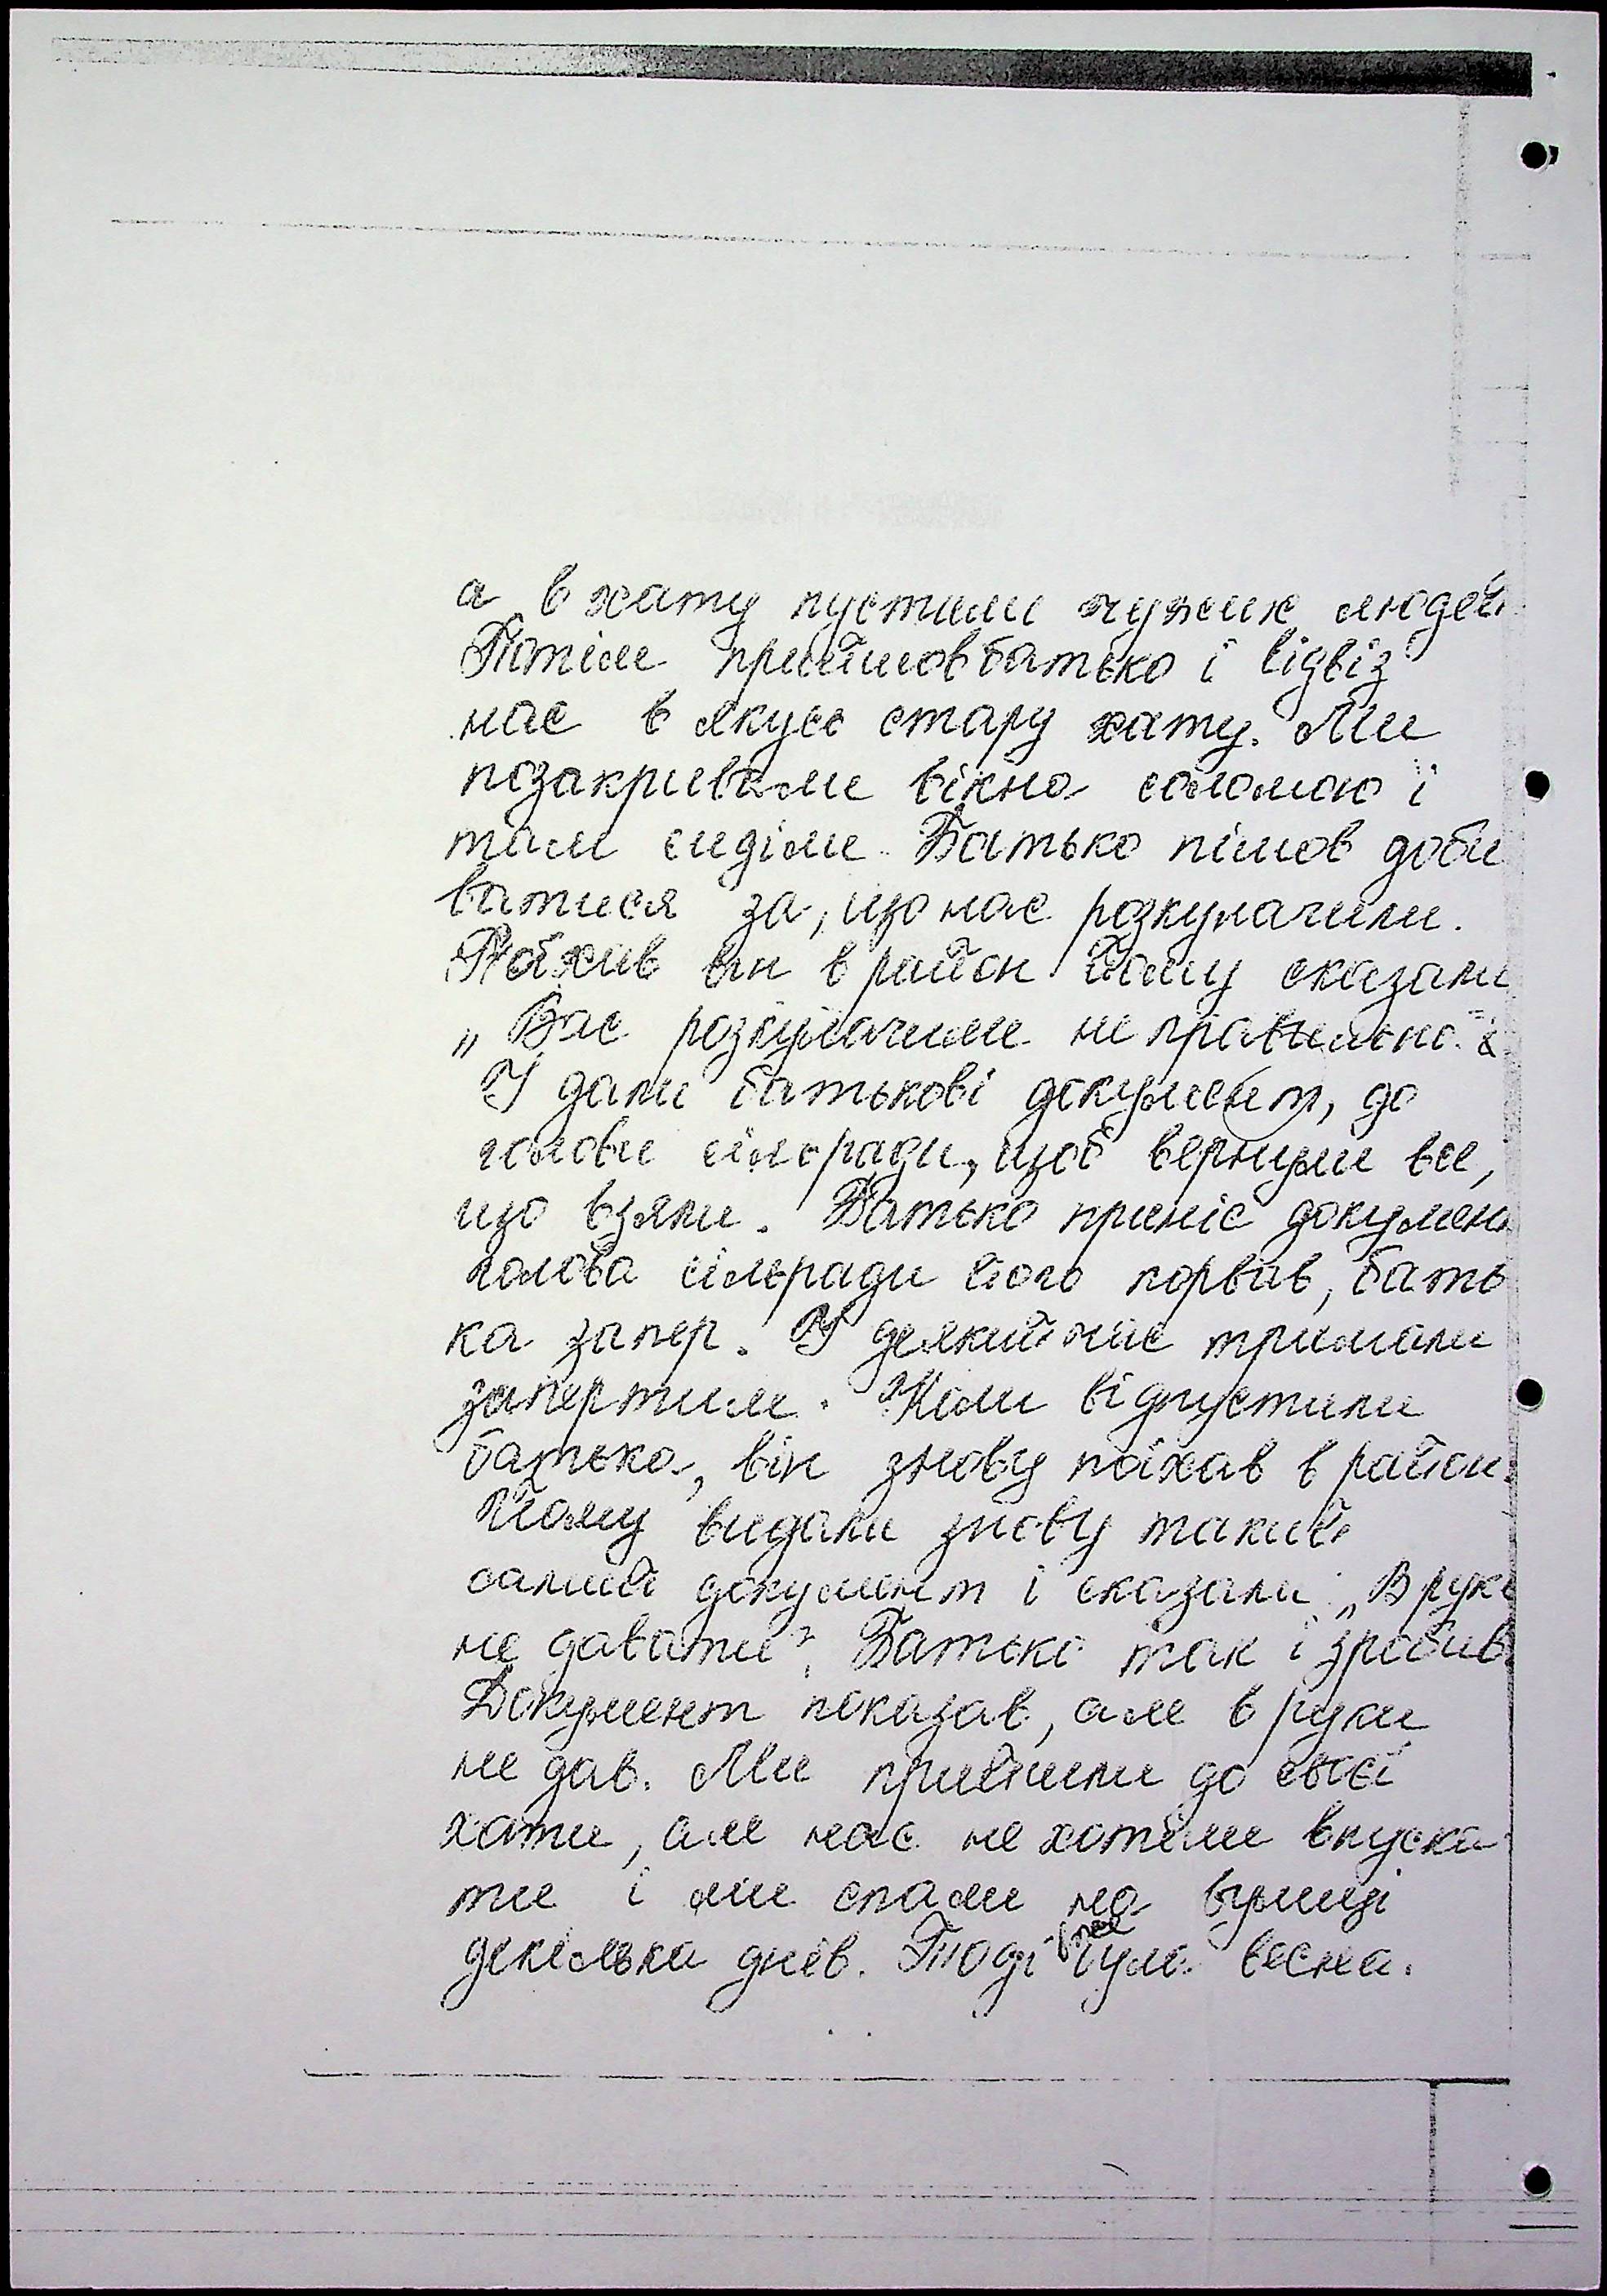 а в хату пустили чужих людей
Потім прийшов батько і відвіз
нас в якусь стару хату. Ми
позакривали вікна соломою і
там сиділи. Батько пішов доби
ватися за, що нас розкулачили.
Поїхив він в район йому сказали
„Вас розкулачили не правильно"
І дали батькові документ, до
голови сільради, щоб вернули все,
що взяли. Батько приніс докумен
голова сільради його порвав, бать
ка запер. І деякий час тримали
запертим. Коли відпустили
батька, він знову поїхав в район.
Йому видали знову такий
самий документ і сказали „В руки
не давати". Батько так і зробив
Документ показав, але в руки
не дав. Ми прийшли до своєї
хати, але нас не хотіли впуска
ти і ми спали на вулиці
декілька днів. Тоді вже була весна.